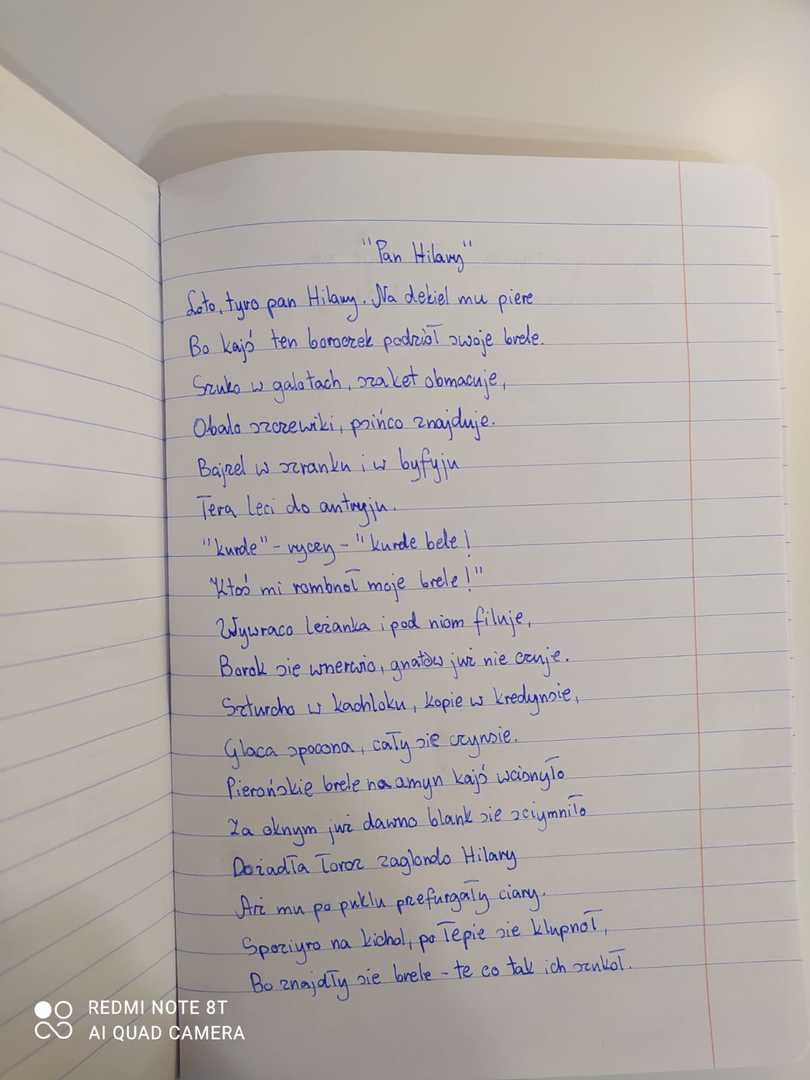 "Pan Hilary"
Loto, tyro pan Hilary. Na dekiel mu piere
Bo kajś ten boroczek podzioł swoje brele.
Szuko w galotach, szaket obmacuje,
Obalo szczewiki, psińco znajduje.
Bajzel w szranku i w byfyju
Tera leci do antryju.
"kurde" - ryczy - "kurde bele!
Ktoś mi rombnoł moje brele!"
Wywraco leżanka i pod niom filuje,
Borok sie wnerwio, gnatów już nie czuje.
Szturcho w kachloku, kopie w kredynsie,
Glaca spocona, cały sie czynsie.
Pierońskie brele na amyn kajś wcisnyło
Za oknym już dawno blank sie sciymniło
Dozadła łoroz zaglondo Hilary
Aż mu po puklu przefurgały ciary.
Spoziyro na kichol, po łepie sie klupnoł,
Bo znajdły sie brele - te co tak ich szukoł.
REDMI NOTE 8T
AI QUAD CAMERA